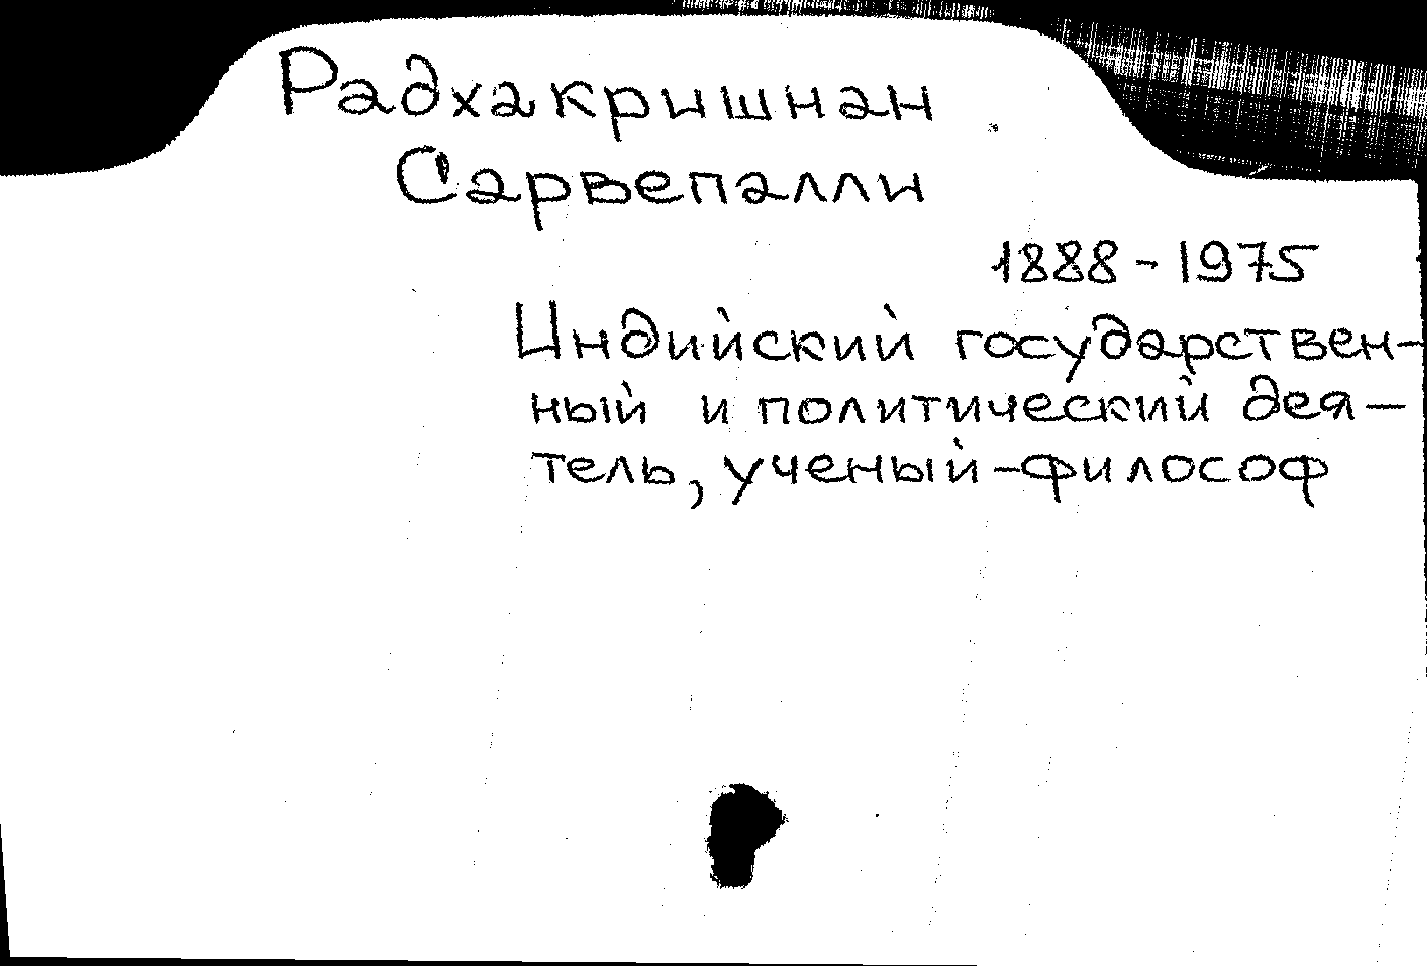 Радхакришнан
Сарвепалли
1888-1975
Индийский государствен-
ный и политический дея-
тель, ученый-философ